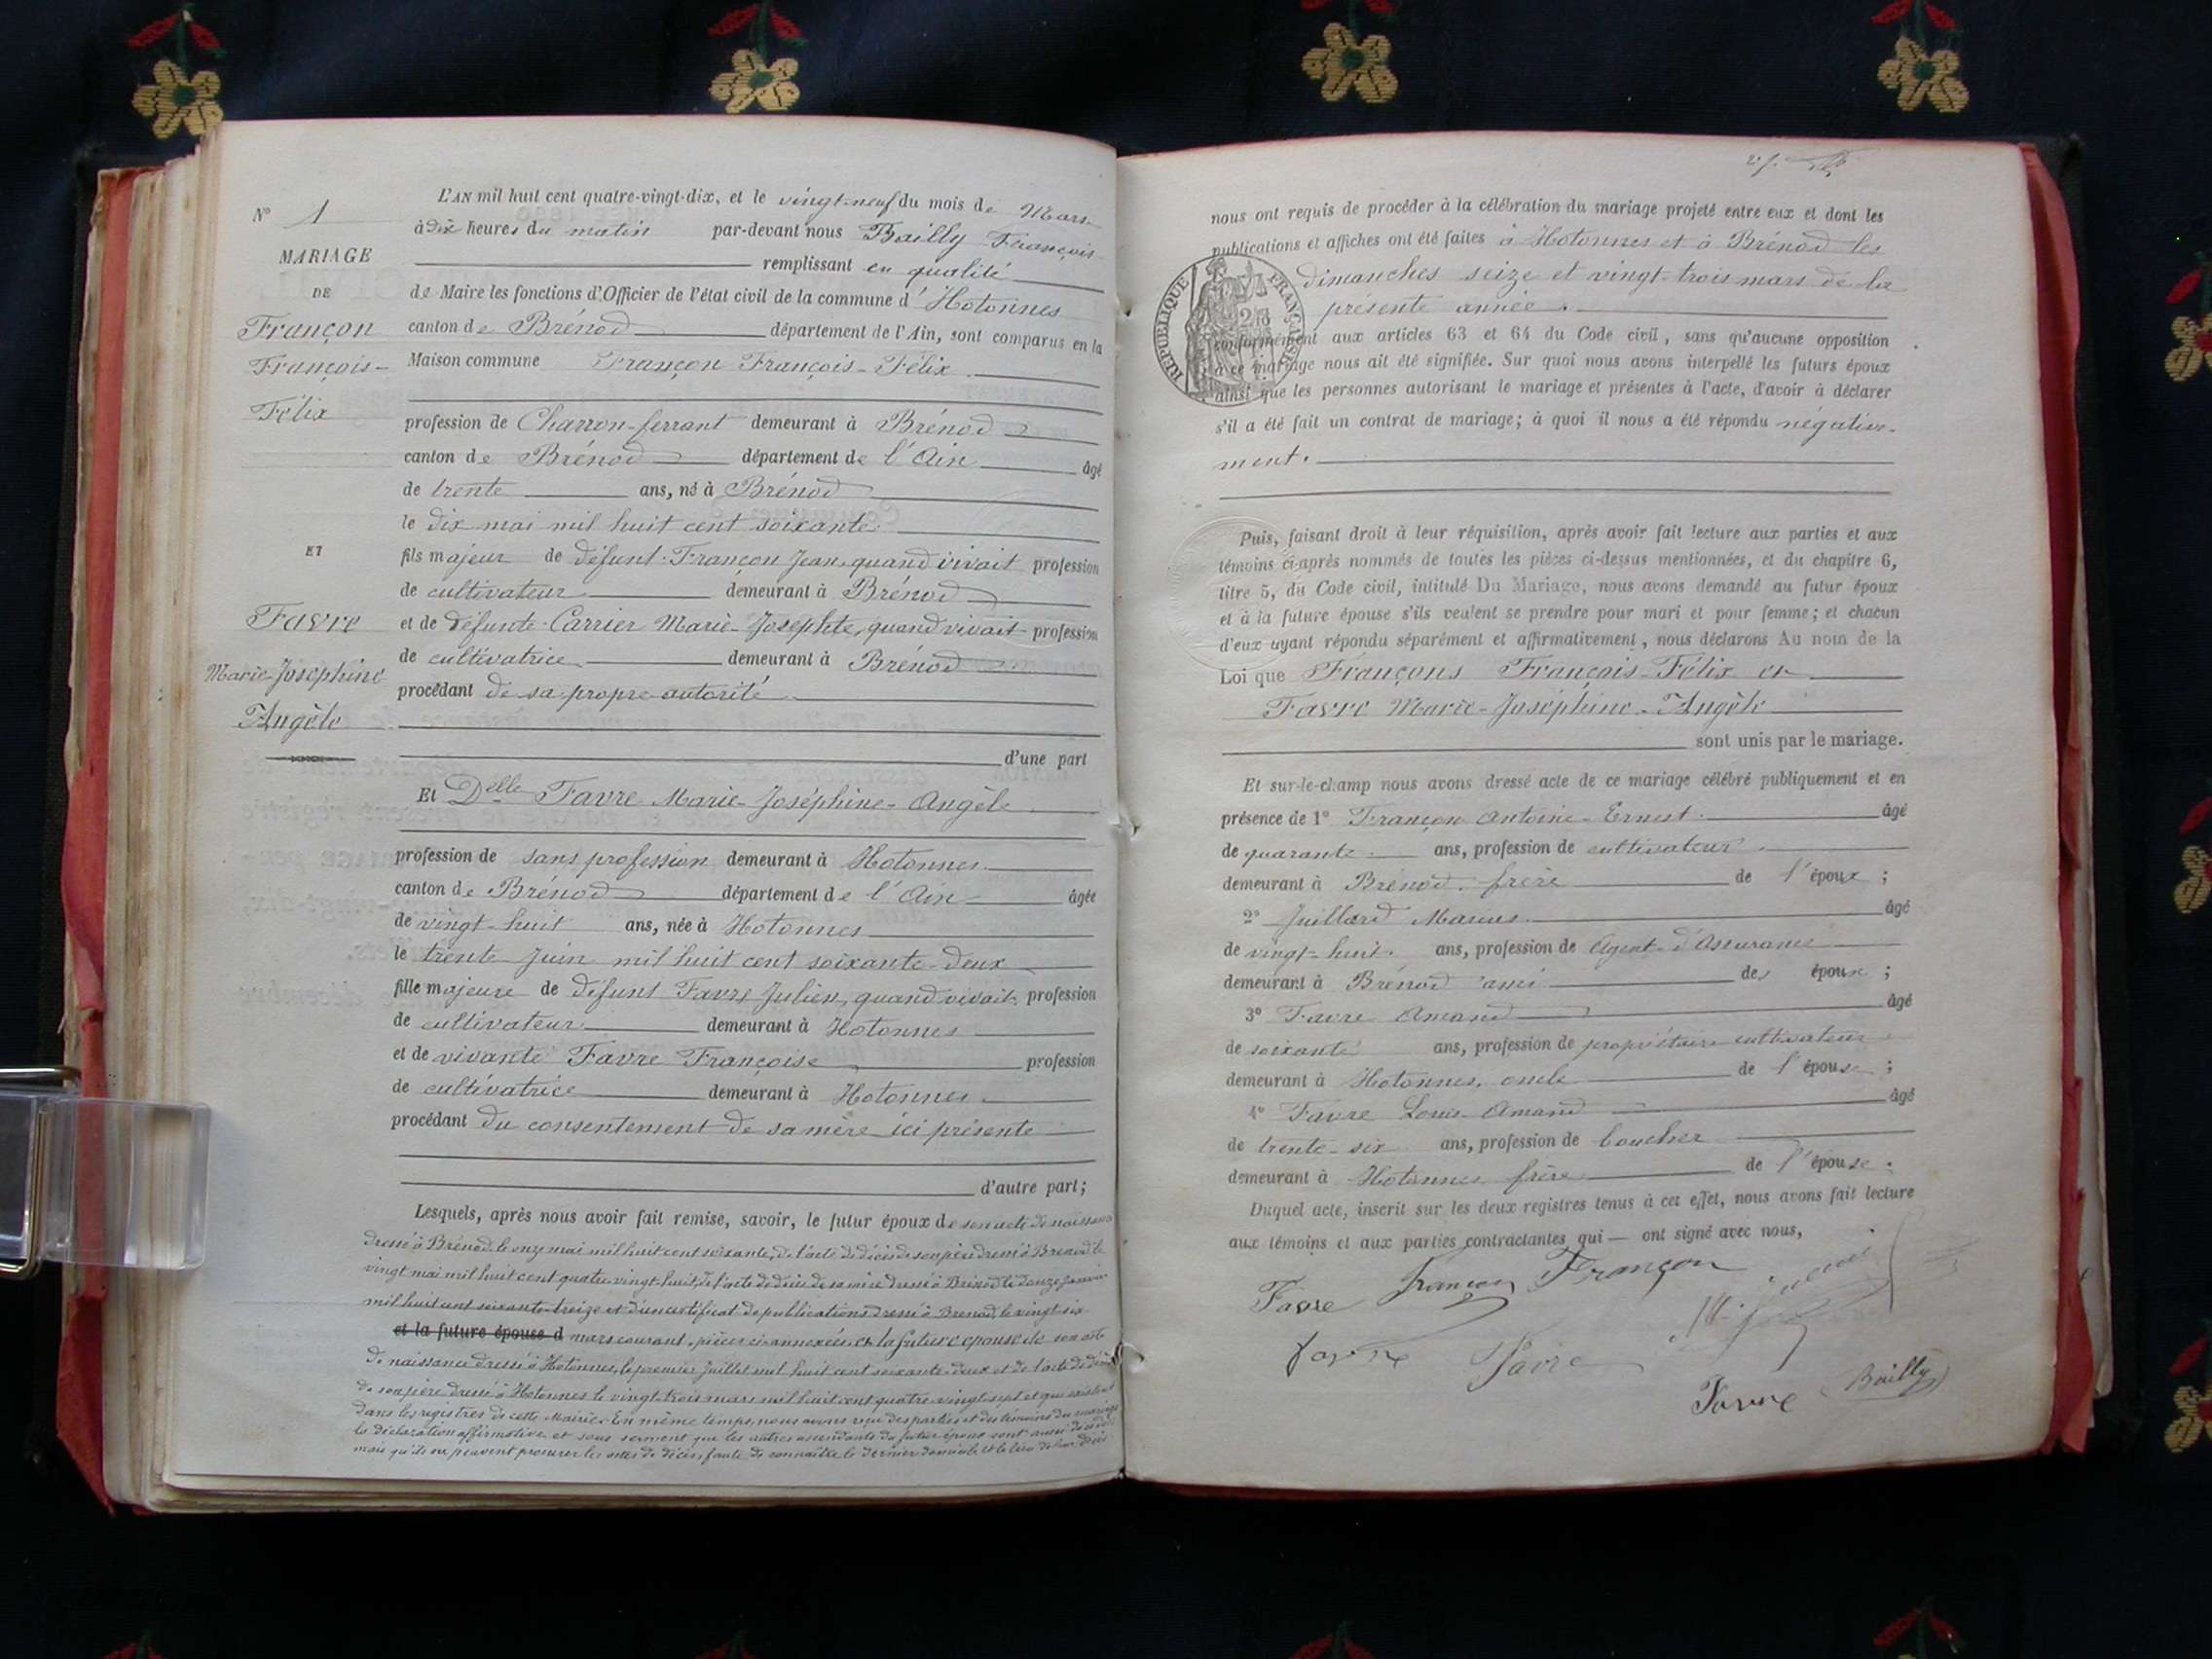 N° 1
MARIAGE
DE
Françon
François-
Félix
ET
Favre
Marie-Joséphine
Angèle
L'AN mil huit cent quatre-vingt-dix, et le vingt-neuf du mois de Mars
à dix heures du matin par-devant nous Bailly François
remplissant en qualité
de Maire les fonctions d'Officier de l'état civil de la commune d'Hotonnes
canton de Brénod département de l'Ain, sont comparus en la
Maison commune Françon François-Félix
profession de Charron-ferrant demeurant à Brénod
canton de Brénod département de l'Ain âgé
de trente ans, né à Brénod
le dix mai mil huit cent soixante
fils majeur de défunt Françon Jean, quand vivait profession
de cultivateur demeurant à Brénod
et de défunte Carrier Marie-Josephte, quand vivait profession
de cultivatrice demeurant à Brénod
procédant de sa propre autorité
d'une part
Et Delle Favre Marie-Joséphine-Angèle
profession de sans profession demeurant à Hotonnes
canton de Brénod département de l'Ain âgée
de vingt-huit ans, née à Hotonnes
le trente Juin mil huit cent soixante-deux
fille majeure de défunt Favre Julien, quand vivait profession
de cultivateur demeurant à Hotonnes
et de vivante Favre Françoise profession
de cultivatrice demeurant à Hotonnes
procédant du consentement de sa mère ici présente
d'autre part;
Lesquels, après nous avoir fait remise, savoir, le futur époux de son acte de naissance
dressé à Brénod le onze mai mil huit cent soixante, de l'acte de décès de son père dressé à Brénod le
vingt mai mil huit cent quatre-vingt-huit, de l'acte de décès de sa mère dressé à Brénod le douze janvier
mil huit cent soixante-treize et d'un certificat de publications dressé à Brénod, le vingt-six
et la future épouse d mars courant, pièces ci-annexées, et la future épouse de son acte
de naissance dressé à Hotonnes, le premier Juillet mil huit cent soixante-deux et de l'acte de décès
de son père dressé à Hotonnes le vingt-trois mars mil huit cent quatre-vingt-sept et qui existent
dans les registres de cette Mairie. En même temps, nous avons reçu des parties et des témoins du mariage
la déclaration affirmative et sous serment que les autres ascendants du futur époux sont aussi décédés
mais qu'ils ne peuvent procurer les actes de décès, faute de connaître le dernier domicile et le lieu de leur décès
nous ont requis de procéder à la célébration du mariage projeté entre eux et dont les
publications et affiches ont été faites à Hotonnes et à Brénod les
dimanches seize et vingt-trois mars de la
présente année.
RÉPUBLIQUE FRANÇAISE
conformément aux articles 63 et 64 du Code civil, sans qu'aucune opposition
à ce mariage nous ait été signifiée. Sur quoi nous avons interpellé les futurs époux
ainsi que les personnes autorisant le mariage et présentes à l'acte, d'avoir à déclarer
s'il a été fait un contrat de mariage; à quoi il nous a été répondu négative-
ment.
Puis, faisant droit à leur réquisition, après avoir fait lecture aux parties et aux
témoins ci-après nommés de toutes les pièces ci-dessus mentionnées, et du chapitre 6,
titre 5, du Code civil, intitulé Du Mariage, nous avons demandé au futur époux
et à la future épouse s'ils veulent se prendre pour mari et pour femme; et chacun
d'eux ayant répondu séparément et affirmativement, nous déclarons Au nom de la
Loi que Françons François-Félix et
Favre Marie-Joséphine-Angèle
sont unis par le mariage.
Et sur-le-champ nous avons dressé acte de ce mariage célébré publiquement et en
présence de 1° Françon Antoine-Ernest âgé
de quarante ans, profession de cultivateur
demeurant à Brénod, frère de l'époux;
2° Juillard Marius âgé
de vingt-huit ans, profession de Agent-d'Assurance
demeurant à Brénod ami des époux;
3° Favre Amand âgé
de soixante ans, profession de propriétaire cultivateur
demeurant à Hotonnes, oncle de l'épouse;
4° Favre Louis-Amand âgé
de trente-six ans, profession de boucher
demeurant à Hotonnes frère de l'épouse.
Duquel acte, inscrit sur les deux registres tenus à cet effet, nous avons fait lecture
aux témoins et aux parties contractantes qui — ont signé avec nous,
Favre françon Françon
favre Favre
Favre Bailly